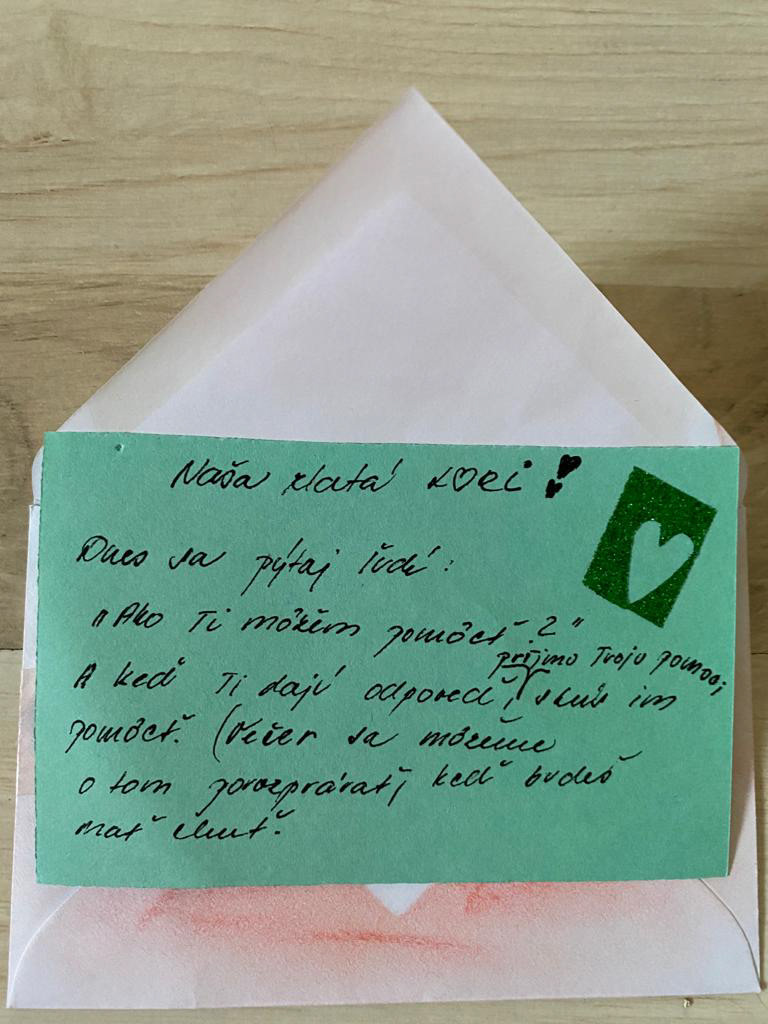 Naša zlatá LORI!
Dnes sa pýtaj ľudí:
"Ako Ti môžem pomôcť?"
príjmu Tvoju pomoc,
A keď Ti dajú odpoveď, skús im
pomôcť. (Večer sa môžeme
o tom porozprávať, keď budeš
mať chuť.